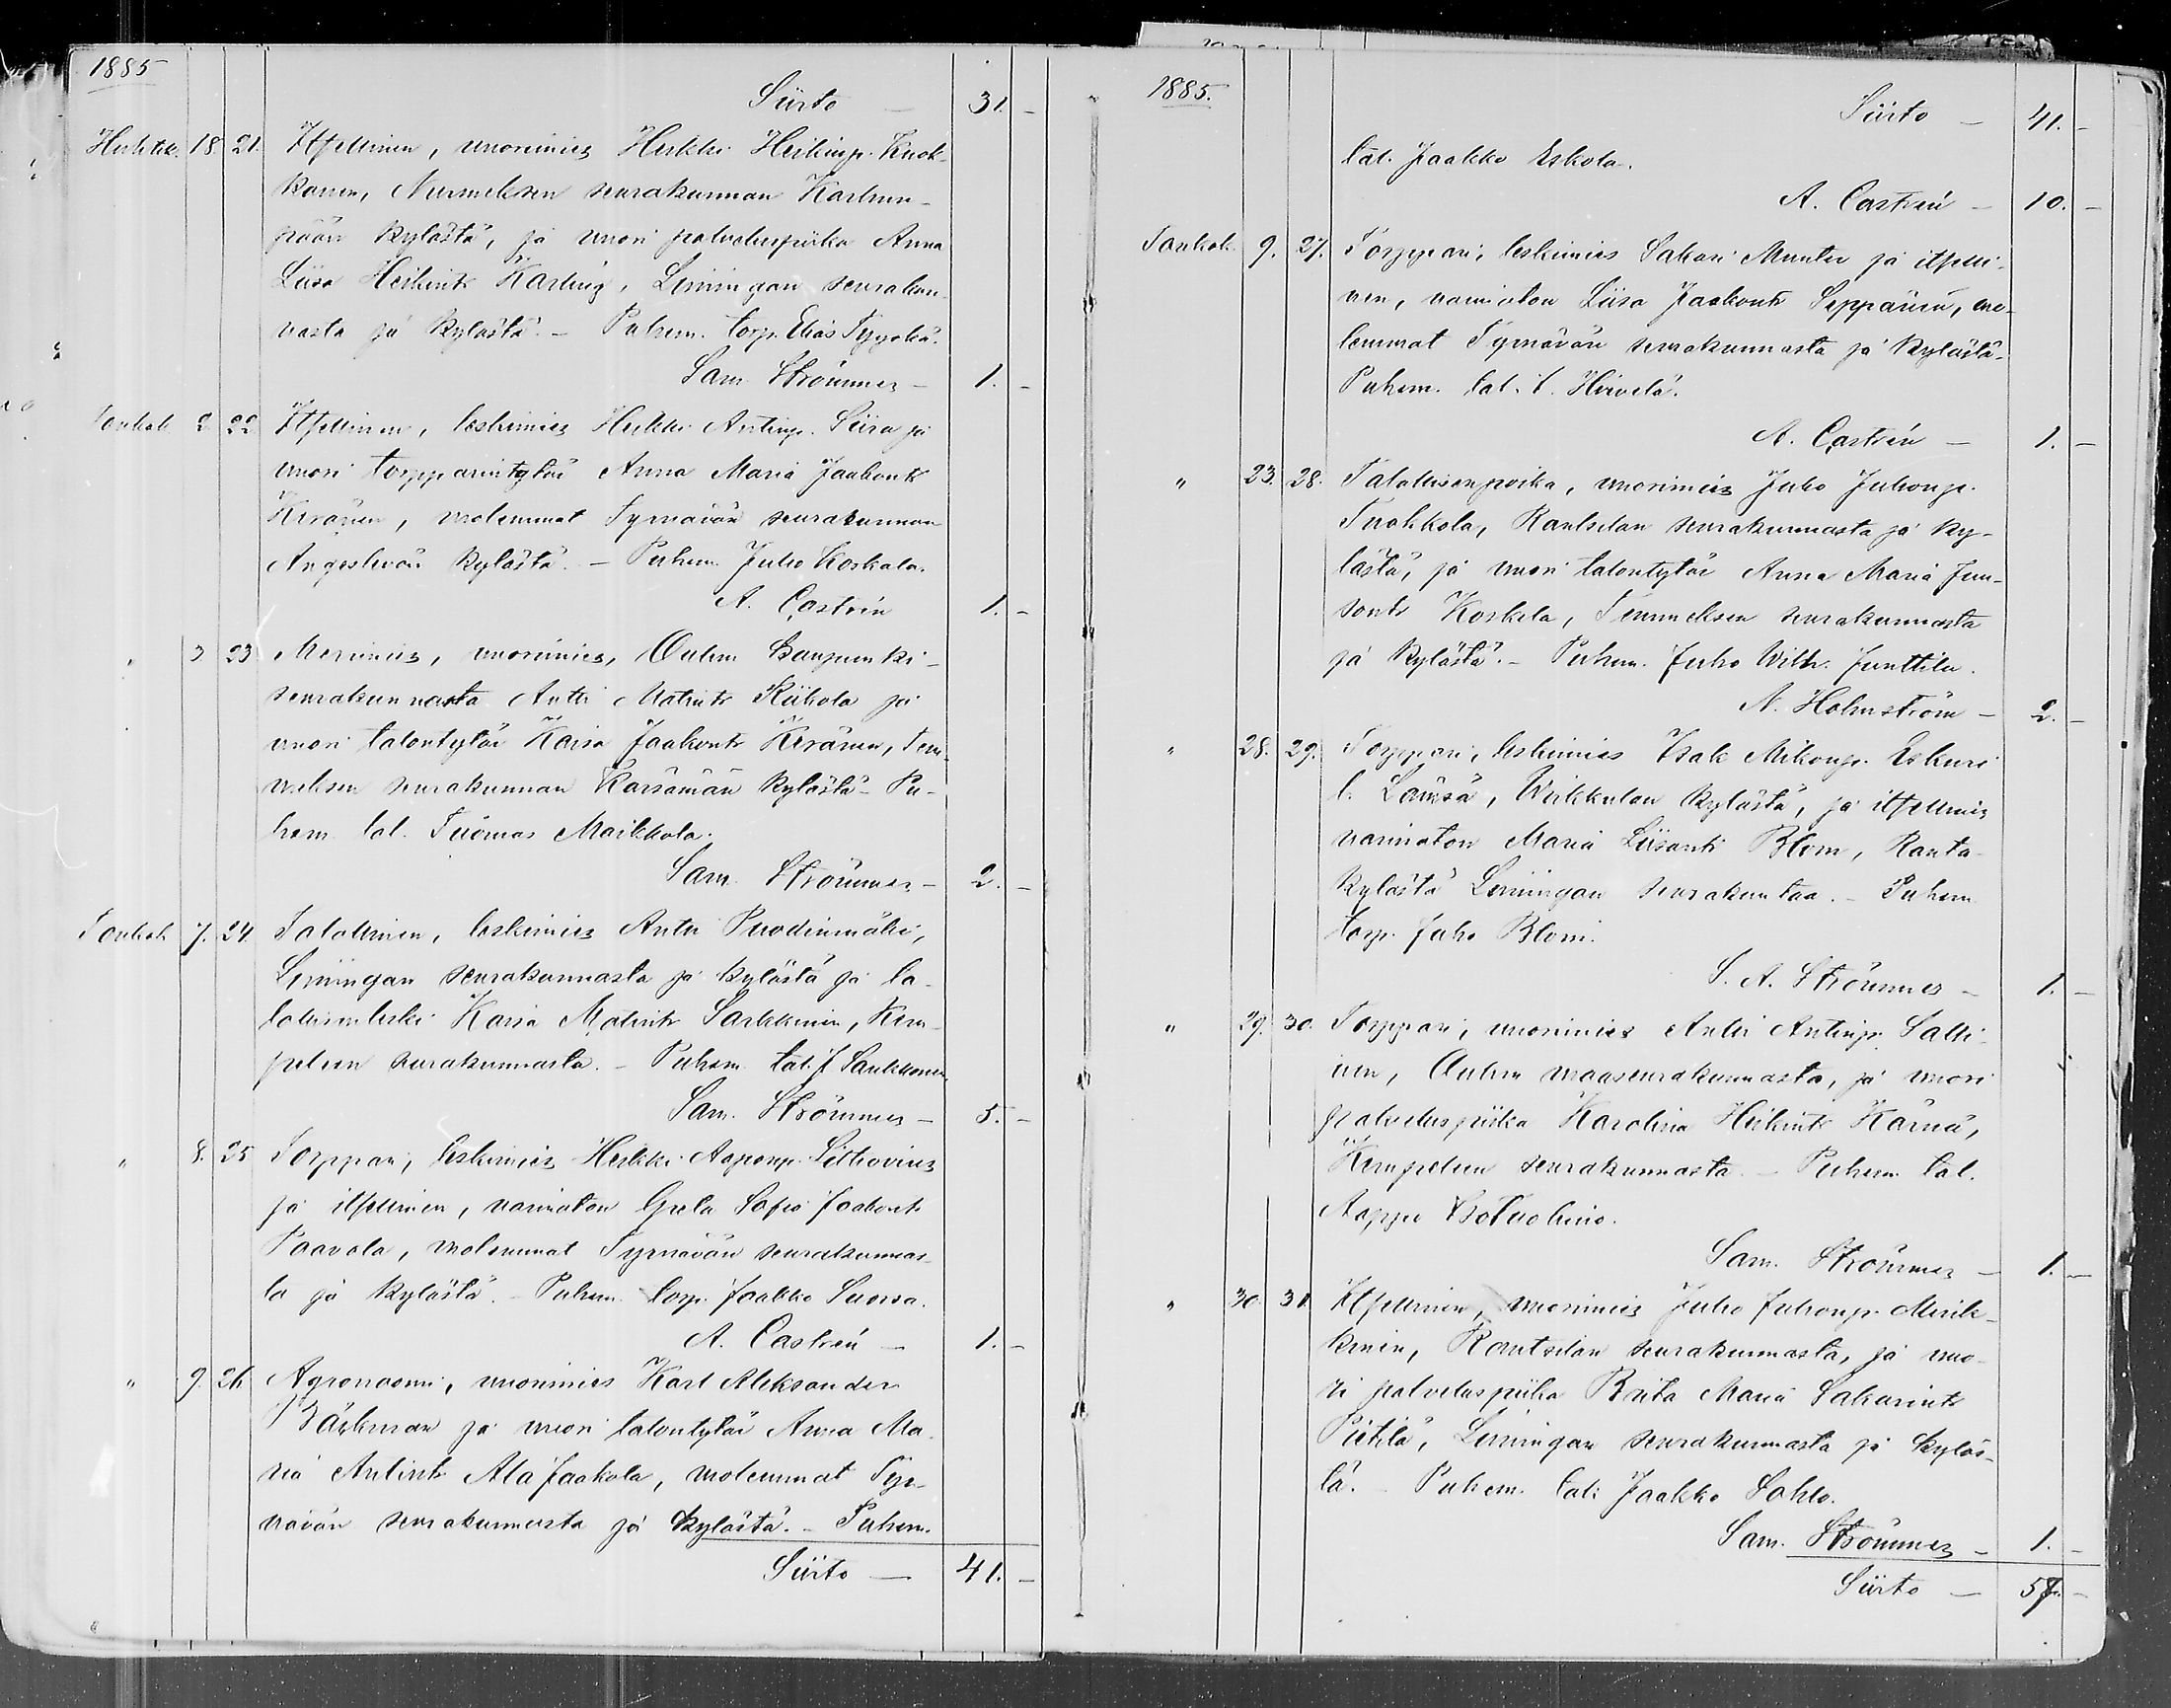 1885
Siirto — 31. -
Huhtik. 18 21. Itsellinen, nuorimies Heikki Heikinp. Kuok-
kanen, Nurmeksen seurakunnan Karhun-
pään kylästä, ja nuori palveluspiika Anna
Liisa Heikintr Karling, Limingan seurakun-
nasta ja kylästä. - Puhem. torp. Elias Tyyskä.
Sam Strömmer - 1. -
Toukok. 2 22 Itsellinen, leskimies Heikki Antinp. Siira ja
nuori torpparintytär Anna Maria Jaakontr
Keränen, molemmat Tyrnävän seurakunnan
Ängeslevän kylästä. - Puhem. Juho Koskala.
A. Castrén 1. -
" 3 23 Merimies, nuorimies, Oulun kaupunki-
seurakunnasta Antti Matintr Kiikola ja
nuori talontytär Kaisa Jaakontr Keränen, Tem-
meksen seurakunnan Kärsämän kylästä - Pu-
hem. tal. Tuomas Markkola.
Sam. Strömmer - 2. -
Toukok 7. 24. Talollinen, leskimies Antti Puodinmäki,
Limingan seurakunnasta ja kylästä ja ta-
lollisenleski Kaisa Matintr Sarkkinen, Kem-
peleen seurakunnasta. - Puhem. tal. J. Sarkkinen.
Sam. Strömmer - 5. -
" 8. 25 Torppari, leskimies Heikki Aaponp. Lithovius
ja itsellinen, naimaton Greta Sofia Jaakontr
Paavola, molemmat Tyrnävän seurakunnas-
ta ja kylästä. - Puhem. torp. Jaakko Suorsa.
A. Castrén — 1. -
" 9. 26 Agronoomi, nuorimies Karl Aleksander
Bäckman ja nuori talontytär Anna Ma-
ria Antintr Ala Jaakola, molemmat Tyr-
nävän seurakunnasta ja kylästä. - Puhem.
Siirto — 41. -
1885.
Siirto — 41. -
tal. Jaakko Eskola.
A. Castrén - 10. -
Toukok. 9. 27. Torppari, leskimies Sakari Muntti ja itselli-
nen, naimaton Liisa Jaakontr Seppänen, mo-
lemmat Tyrnävän seurakunnasta ja kylästä.
Puhem. tal. Hirvelä.
A. Castrén — 1. -
" 23. 28. Talollisenpoika, nuorimies Juho Juhonp.
Tuokkola, Rantsilan seurakunnasta ja ky-
lästä, ja nuori talontytär Anna Maria Juu-
sontr Koskela, Temmeksen seurakunnasta
ja kylästä. - Puhem. Juho Wilh. Junttila.
A. Holmström - 2. -
" 28. 29. Torppari, leskimies Isak Mikonp. Eskuri
l. Lämsä, Wirkkulan kylästä, ja itsellinen
naimaton Maria Liisantr Blom, Ranta-
kylästä Limingan seurakuntaa. - Puhem.
torp. Juho Blomi.
S. A. Strömmer - 1. -
" 29. 30. Torppari, nuorimies Antti Antinp. Salli-
nen, Oulun maaseurakunnasta, ja nuori
palveluspiika Karolina Heikintr Kärnä,
Kempeleen seurakunnasta. - Puhem. tal.
Aappo
Sam. Strömmer — 1. —
" 30. 31. Itsellinen, nuorimies Juho Juhonp. Mirik-
kinen, Rantsilan seurakunnasta, ja nuo-
ri palveluspiika Brita Maria Sakarintr
Pietilä, Limingan seurakunnasta ja kyläs-
tä. - Puhem. tal. Jaakko Sohlo.
Sam. Strömmer - 1. -
Siirto — 57. -